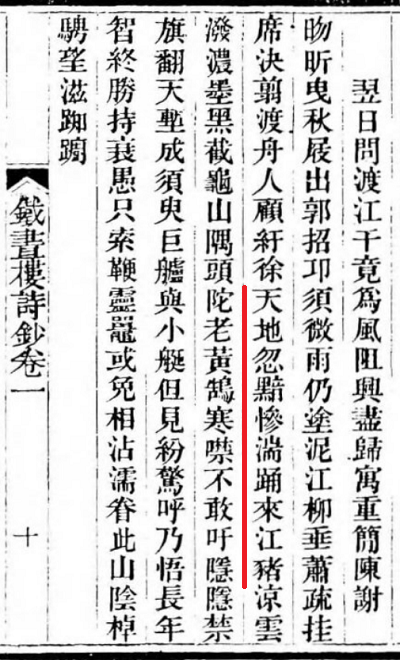 翌日問渡江干竟爲風阻興盡歸寓重簡陳謝
昒昕曳秋屐出郭招卭須微雨仍塗泥江柳垂蕭疏挂
席決翦渡舟人顧紆徐天地忽黯慘湍踊來江豬涼雲
潑濃墨黑截龜山隅頭陀老黃鵠寒噤不敢吁隱隱禁
旗翻天塹成須臾巨艫與小艇但見紛驚呼乃悟長年
智終勝持衰愚只索鞭靈鼉或免相沾濡眷此山陰棹
騁望滋踟躕
鐵畫樓詩鈔卷一
十